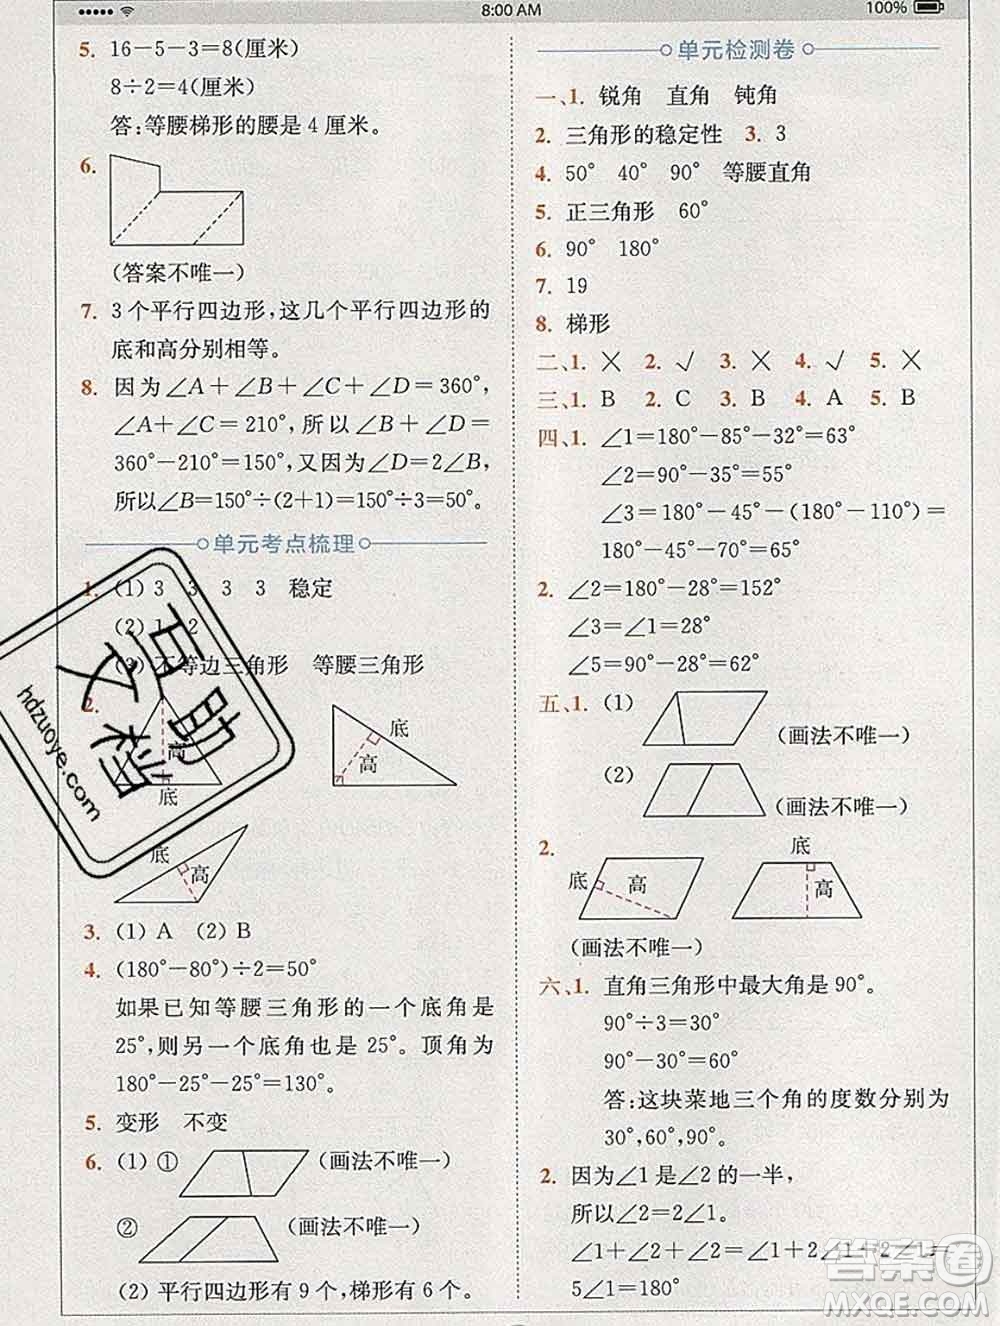 8:00 AM
100%
5. 16－5－3＝8(厘米)
8÷2＝4(厘米)
答:等腰梯形的腰是 4 厘米。
6.
(答案不唯一)
7. 3 个平行四边形,这几个平行四边形的
底和高分别相等。
8. 因为∠A＋∠B＋∠C＋∠D＝360°,
∠A＋∠C＝210°,所以∠B＋∠D＝
360°－210°＝150°,又因为∠D＝2∠B,
所以∠B＝150°÷(2＋1)＝150°÷3＝50°。
单元考点梳理
1. (1) 3 3 3 3 稳定
(2) 1 2
(3) 不等边三角形 等腰三角形
2.
高
底
底
高
底
高
3. (1) A (2) B
4. (180°－80°)÷2＝50°
如果已知等腰三角形的一个底角是
25°,则另一个底角也是 25°。顶角为
180°－25°－25°＝130°。
5. 变形 不变
6. (1) ① (画法不唯一)
② (画法不唯一)
(2) 平行四边形有 9 个,梯形有 6 个。
单元检测卷
一、1. 锐角 直角 钝角
2. 三角形的稳定性 3. 3
4. 50° 40° 90° 等腰直角
5. 正三角形 60°
6. 90° 180°
7. 19
8. 梯形
二、1. ╳ 2. √ 3. ╳ 4. √ 5. ╳
三、1. B 2. C 3. B 4. A 5. B
四、1. ∠1＝180°－85°－32°＝63°
∠2＝90°－35°＝55°
∠3＝180°－45°－(180°－110°)＝
180°－45°－70°＝65°
2. ∠2＝180°－28°＝152°
∠3＝∠1＝28°
∠5＝90°－28°＝62°
五、1. (1)
(画法不唯一)
(2)
(画法不唯一)
2.
底
高
底
高
(画法不唯一)
六、1. 直角三角形中最大角是 90°。
90°÷3＝30°
90°－30°＝60°
答:这块菜地三个角的度数分别为
30°,60°,90°。
2. 因为∠1是∠2的一半,
所以∠2＝2∠1。
∠1＋∠2＋∠2＝∠1＋2∠1＋2∠1＝
5∠1＝180°
百助文档
hdzuoye.com
答案圈
MXQE.COM